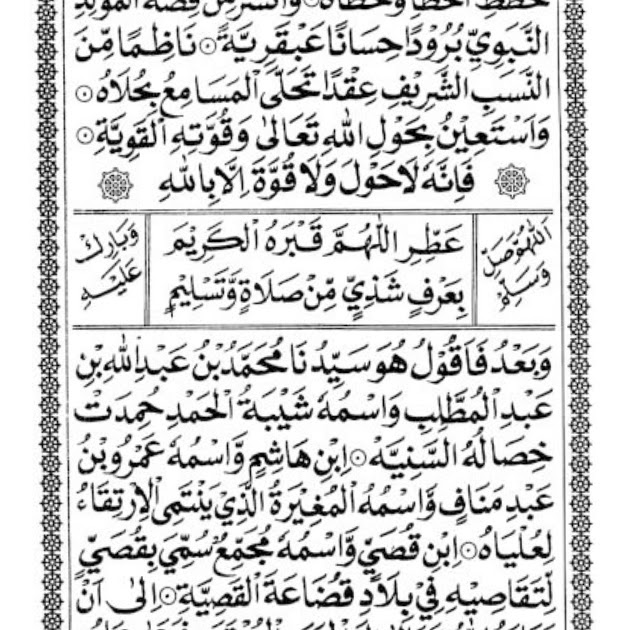 خِطَطِ الْخَطَأِ وَخُطَاهُ ۞ وَأَنْشُرُ مِنْ قِصَّةِ الْمَوْلِدِ
النَّبَوِيِّ بُرُوْدًا حِسَانًا عَبْقَرِيَّةً ۞ نَاظِمًا مِّنَ
النَّسَبِ الشَّرِيْفِ عِقْدًا تَحَلَّى الْمَسَامِعُ بِحُلَاهُ ۞
وَاَسْتَعِيْنُ بِحَوْلِ اللهِ تَعَالٰى وَقُوَّتِهِ الْقَوِيَّةِ ۞
فَاِنَّهُ لَاحَوْلَ وَلَا قُوَّةَ اِلَّا بِاللهِ
اَللّٰهُمَّ صَلِّ وَسَلِّمْ
عَطِّرِ اللّٰهُمَّ قَبْرَهُ الْكَرِيْمَ
بِعَرْفٍ شَذِيٍّ مِّنْ صَلَاةٍ وَّتَسْلِيْمٍ
وَبَارِكْ عَلَيْهِ
وَبَعْدُ فَاَقُوْلُ هُوَ سَيِّدُنَا مُحَمَّدُ بْنُ عَبْدِ اللهِ بْنِ
عَبْدِ الْمُطَّلِبِ وَاسْمُهُ شَيْبَةُ الْحَمْدِ حُمِدَتْ
خِصَالُهُ السَّنِيَّه ۞ اِبْنِ هَاشِمٍ وَّاسْمُهُ عَمْرُو بْنُ
عَبْدِ مَنَافٍ وَّاسْمُهُ الْمُغِيْرَةُ الَّذِيْ يَنْتَمِى الْاِرْتِقَاءُ
لِعُلْيَاهُ ۞ اِبْنِ قُصَيٍّ وَّاسْمُهُ مُجَمِّعٌ سُمِّيَ بِقُصَيٍّ
لِّتَقَاصِيْهِ فِيْ بِلَادِ قُضَاعَةَ الْقَصِيَّةِ ۞ اِلٰى اَنْ